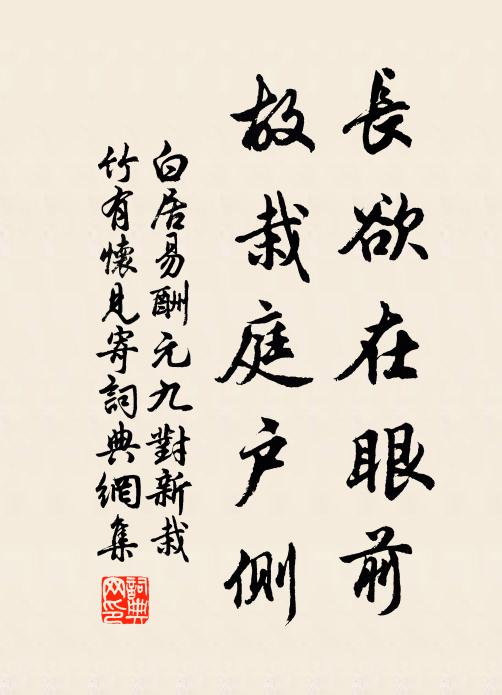 長欲在眼前
故栽庭户側
白居易酬元九對新栽
竹有懷見寄詞典網集
詞典网印